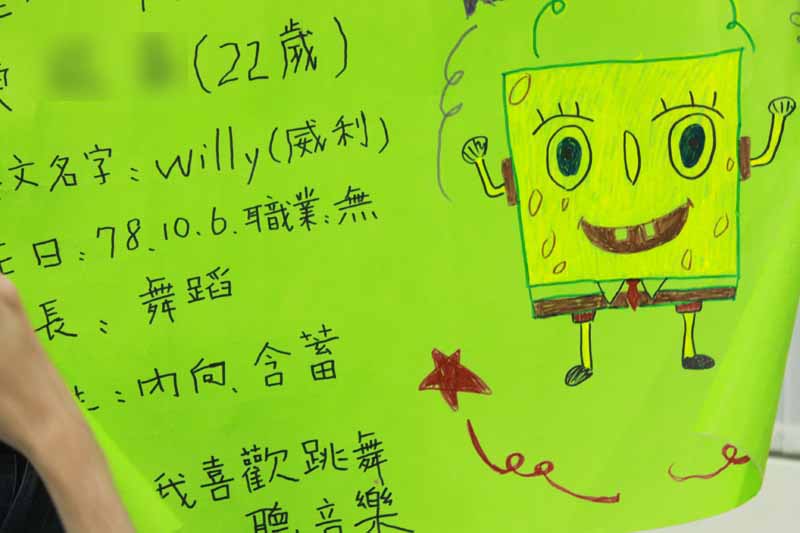 (22歲)
文名字：willy(威利)
日：78.10.6.職業：無
長：舞蹈
：內向、含蓄
我喜歡跳舞
聽音樂